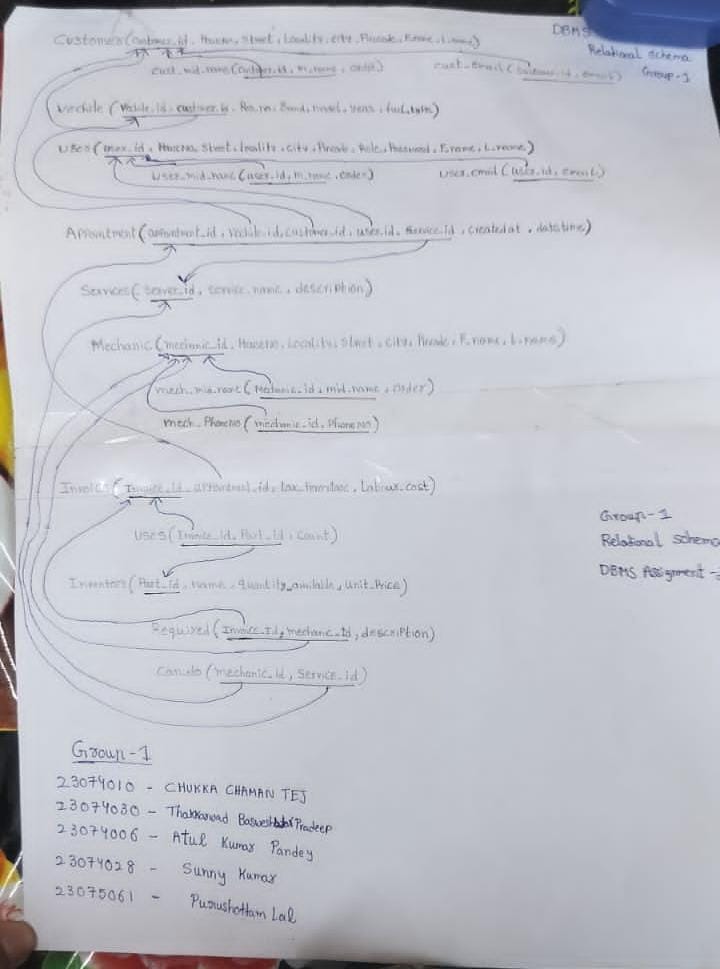 DBMS
Relational schema
Group-1
Customers(customer_id, HouseNo, Street, Locality, City, Pincode, F.name, L.name)
cust_mid_name(customer_id, m_name, order)
cust_email(customer_id, email)
Vechile(Vechile_id, customer_id, Reg.no, Brand, model, Year, fuel_type)
User(user_id, HouseNo, Street, locality, city, Pincode, Role, Password, F.name, L.name)
User_mid_name(user_id, m_name, order)
User_email(user_id, email)
Appointment(appointment_id, vechile_id, customer_id, user_id, service_id, Created at, date time)
Services(service_id, service_name, description)
Mechanic(mechanic_id, HouseNo, Locality, Street, City, Pincode, F.name, L.name)
mech_mid_name(Mechanic_id, mid_name, order)
mech_PhoneNo(mechanic_id, Phone No)
Invoice(Invoice_id, appointment_id, Labour_cost)
Uses(Invoice_id, Part_id, Count)
Inventory(Part_id, name, Quantity_available, Unit_Price)
Required(Invoice_Id, mechanic_Id, description)
Can_do(mechanic_id, Service_id)
Group-1
Relational schema
DBMS Assignment
Group-1
23074010 - CHUKKA CHAMAN TEJ
23074030 - Pradeep
23074006 - Atul Kumar Pandey
23074028 - Sunny Kumar
23075061 - Purushottam Lal